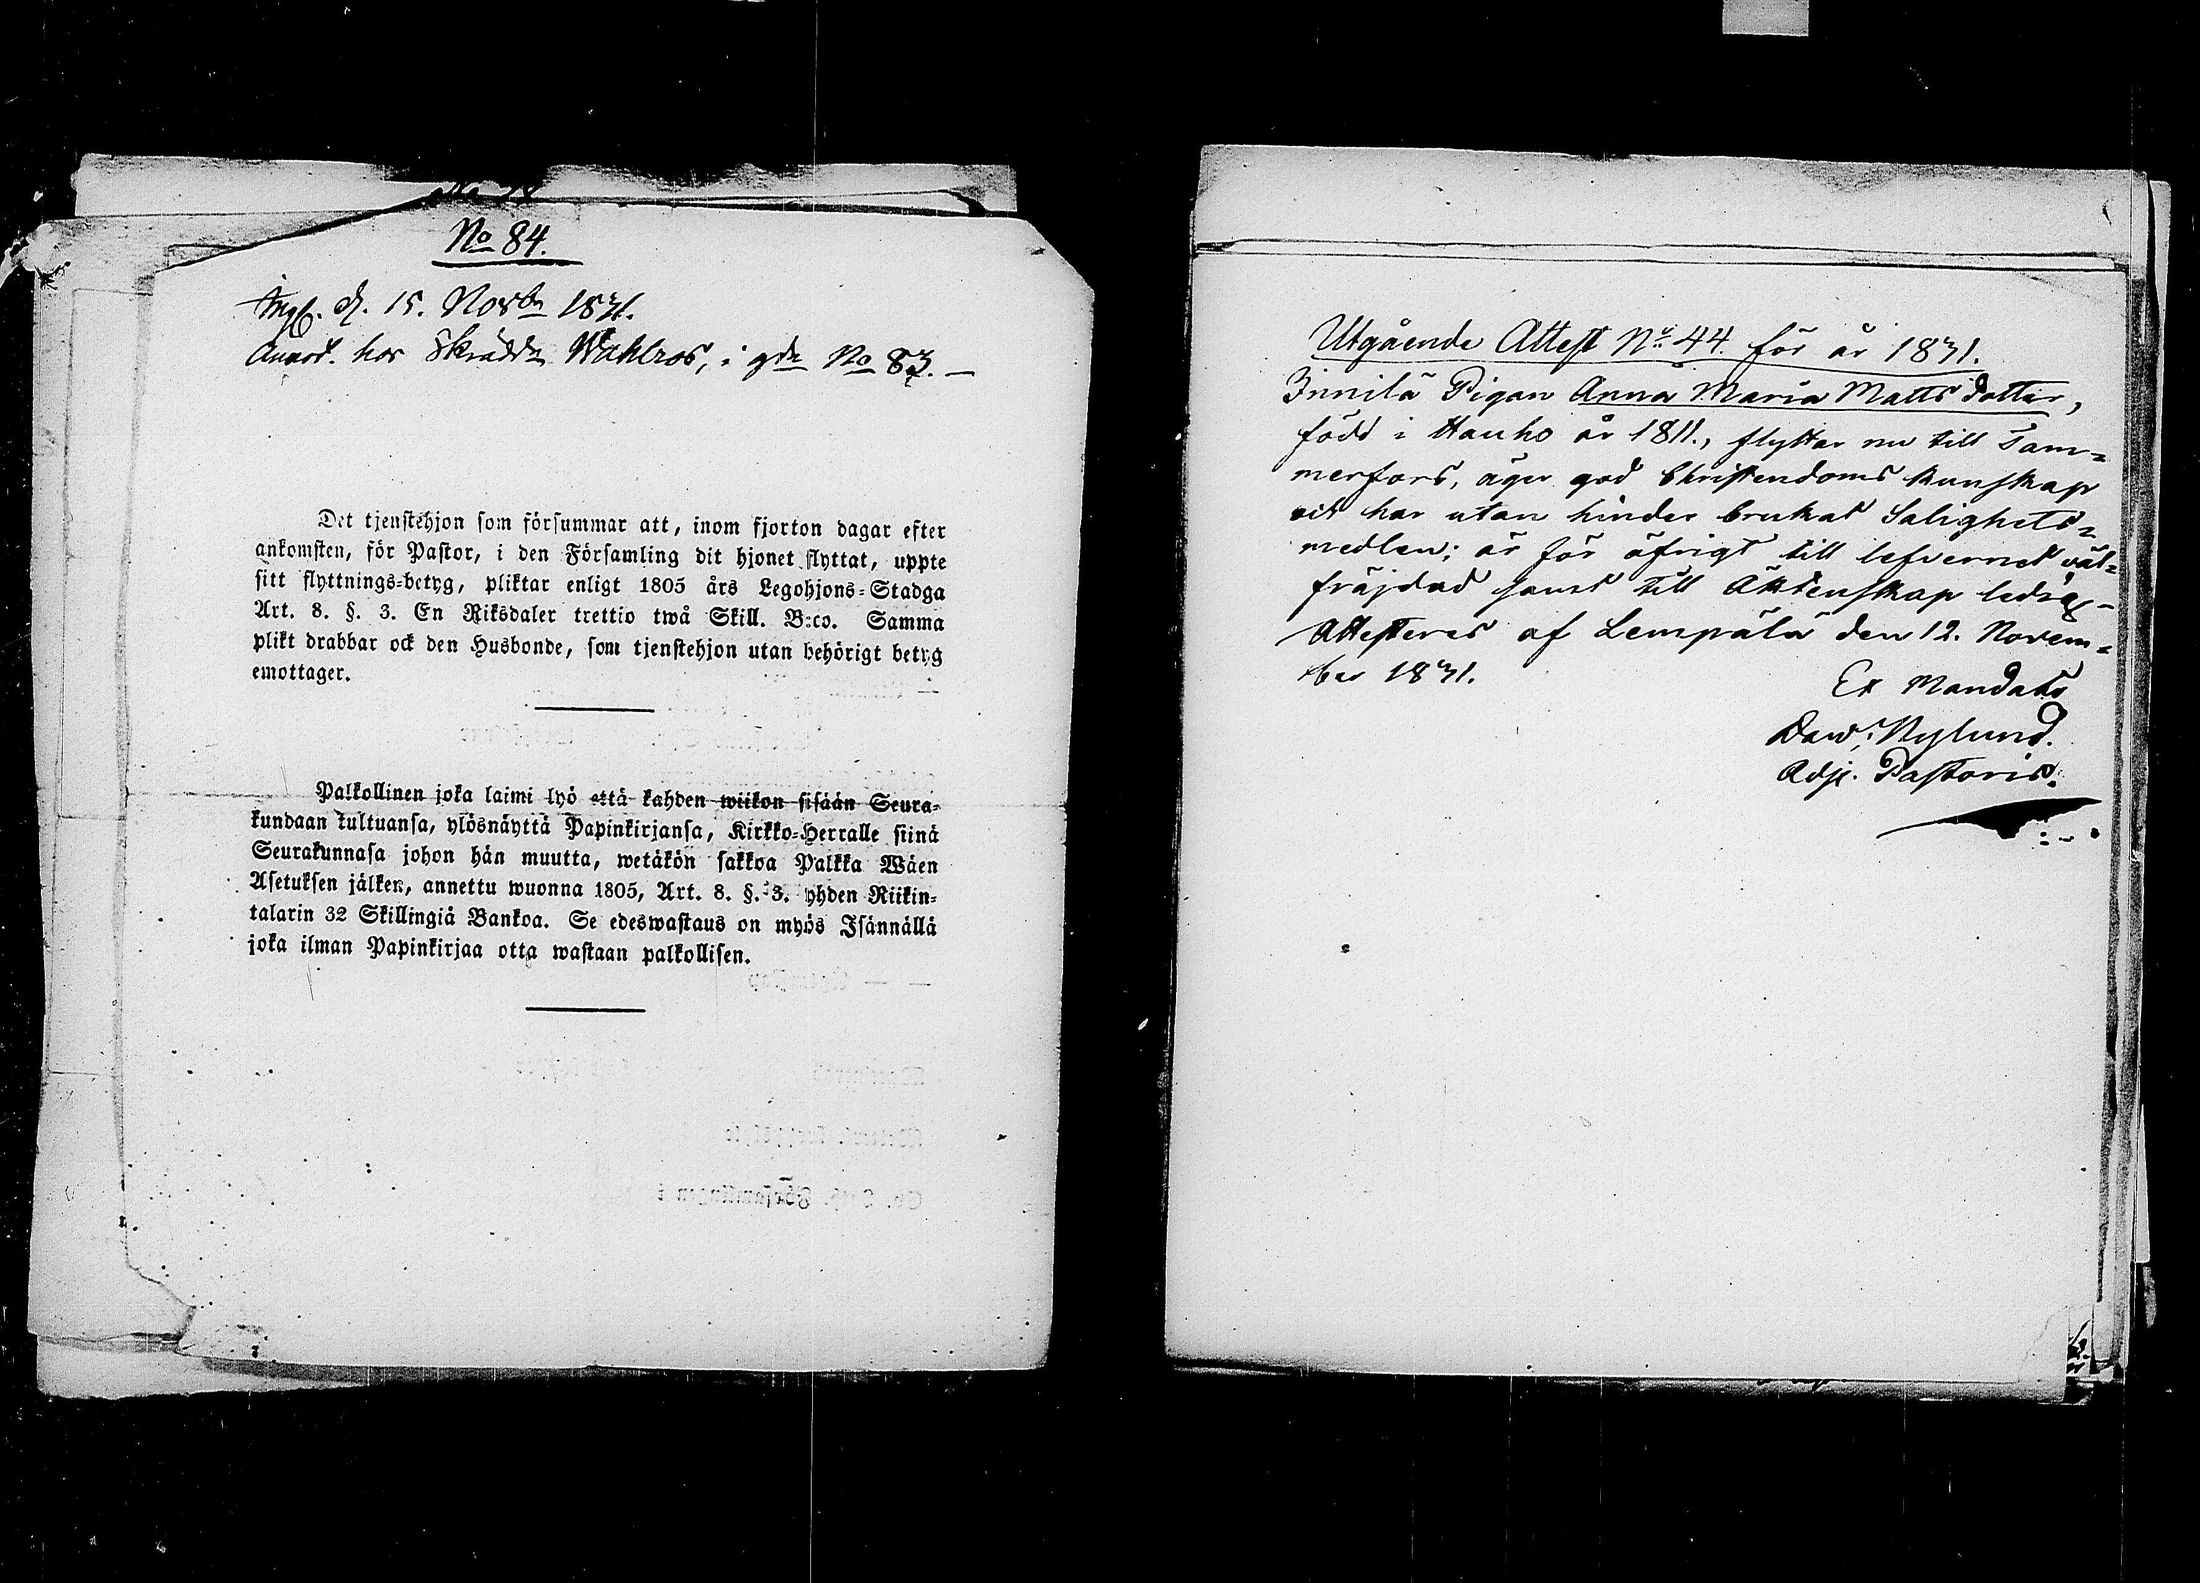 No 84.
Ingf. d. 15. Novbr 1831.
Annot. hos Skräddr Wahlros, i gdn No 83. —
Det tjenstehjon som försummar att, inom fjorton dagar efter
ankomsten, för Pastor, i den Församling dit hjonet flyttat, uppte
sitt flyttnings-betyg, pliktar enligt 1805 års Legohjons-Stadga
Art. 8. §. 3. En Riksdaler trettio twå Skill. B:co. Samma
plikt drabbar ock den Husbonde, som tjenstehjon utan behörigt betyg
emottager.
Palkollinen joka laimi lyö että kahden wiikon sisään Seura-
kundaan tultuansa, ylösnäyttä Papinkirjansa, Kirkko-Herralle siinä
Seurakunnasa johon hän muutta, wetäkön sakkoa Palkka Wäen
Asetuksen jälken, annettu wuonna 1805, Art. 8. §. 3. yhden Riikin-
talarin 32 Skillingiä Bankoa. Se edeswastaus on myös Isännällä
joka ilman Papinkirjaa otta wastaan palkollisen.
Utgående Attest No 44. för år 1831.
Innilä Pigan Anna Maria Matts dotter,
född i Hauho år 1811., flyttar nu till Tam-
merfors, äger god Christendoms kunskap
och har utan hinder brukat Salighets-
medlen; är för öfrigt till lefvernet väl-
fräjdad samt till Äktenskap ledig –
Attesteras af Lempälä den 12. Novem-
ber 1831.
Ex Mandato
Dav: Nylund.
Adj. Pastoris.